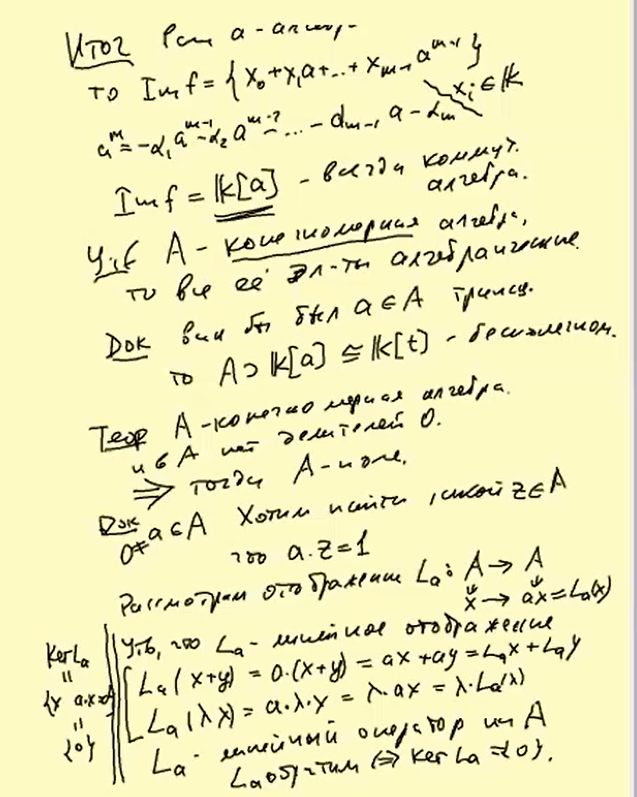 Итог Если a - алгебр.
то Im f = {x₀+x₁a+...+x_{m-1} a^{m-1}}
x_i ∈ 𝕜
a^m = -α₁a^{m-1} - α₂a^{m-2} - ... - α_{m-1} a - α_m
Im f = 𝕜[a] - всегда коммут.
алгебра.
Утв A - конечномерная алгебра,
то все её эл-ты алгебраические.
Док если бы был a ∈ A трансц.
то A ⊃ 𝕜[a] ≅ 𝕜[t] - бесконечном.
Теор A - конечномерная алгебра.
и в A нет делителей 0.
⟹ тогда A - поле.
Док 0≠a ∈ A Хотим найти такой z ∈ A
что a·z=1
Рассмотрим отображение L_a: A → A
x → ax = L_a(x)
Утв, что L_a - линейное отображение
L_a(x+y) = a·(x+y) = ax+ay = L_a x + L_a y
L_a(λx) = a·λ·x = λ·ax = λ·L_a(x)
Ker L_a
=
{x a·x=0}
=
{0}
L_a - линейный оператор на A
L_a обратим ⟺ Ker L_a = {0}.